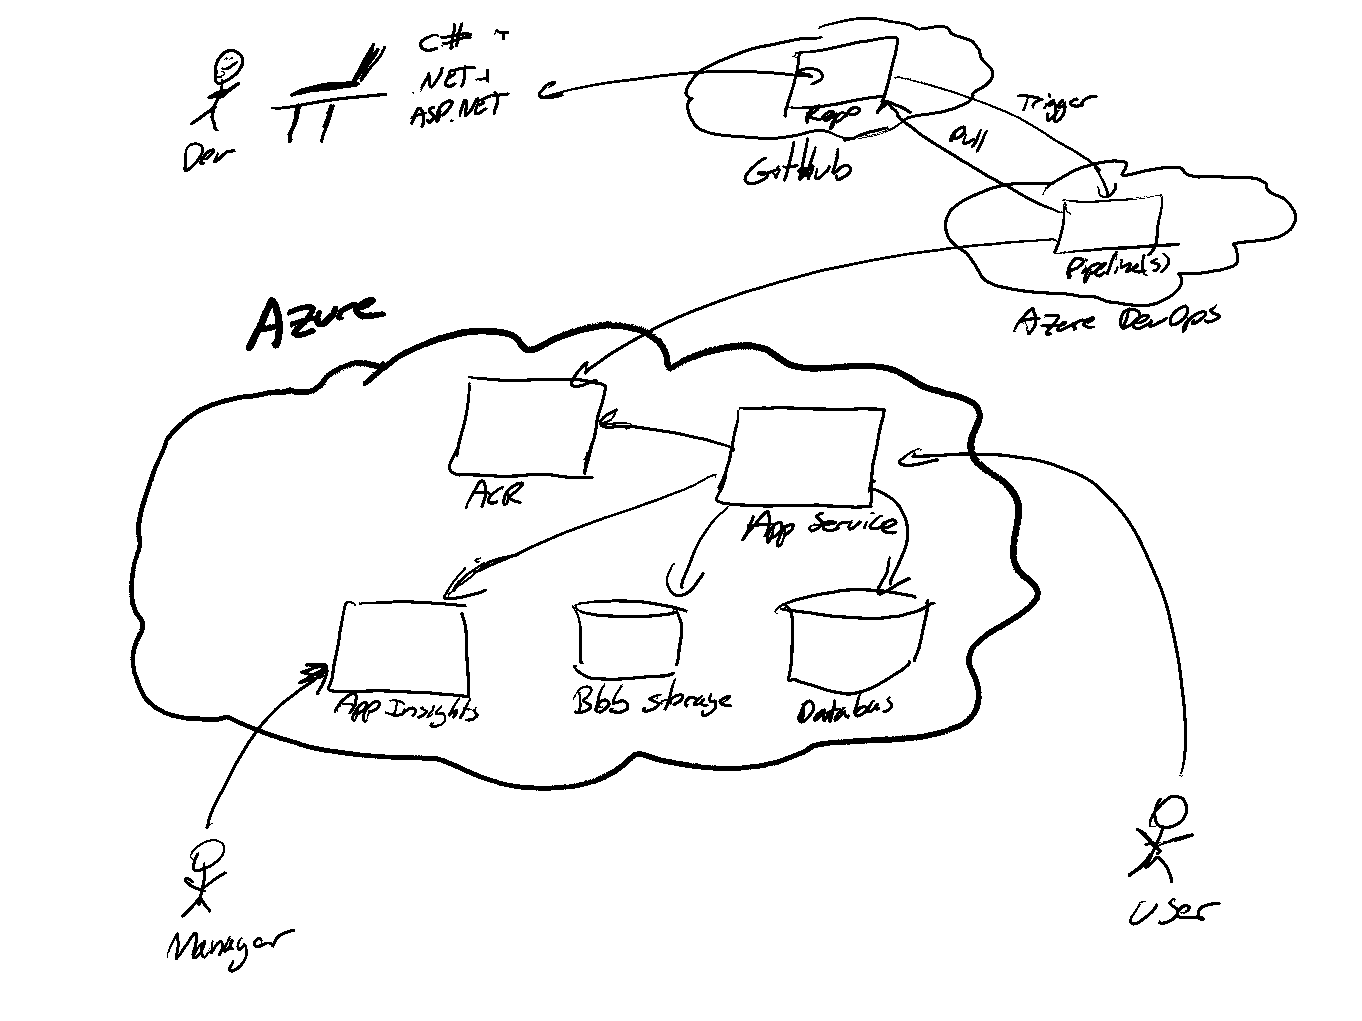 C# +
.NET +
ASP.NET
Dev
Repo
GitHub
Trigger
Pull
Pipeline(s)
Azure DevOps
Azure
ACR
App Service
App Insights
Blob Storage
Databas
Manager
User